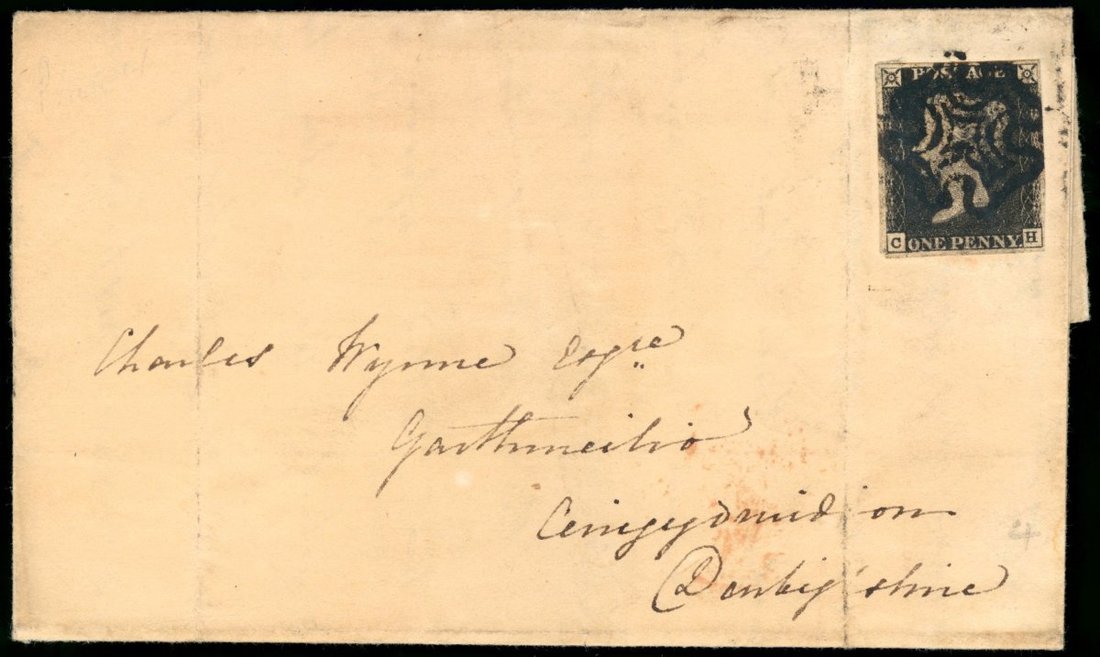 POSTAGE
C ONE PENNY H
Charles Wynne Esqre
Garthmeilio
Cerrigydruidion
Denbighshire
4